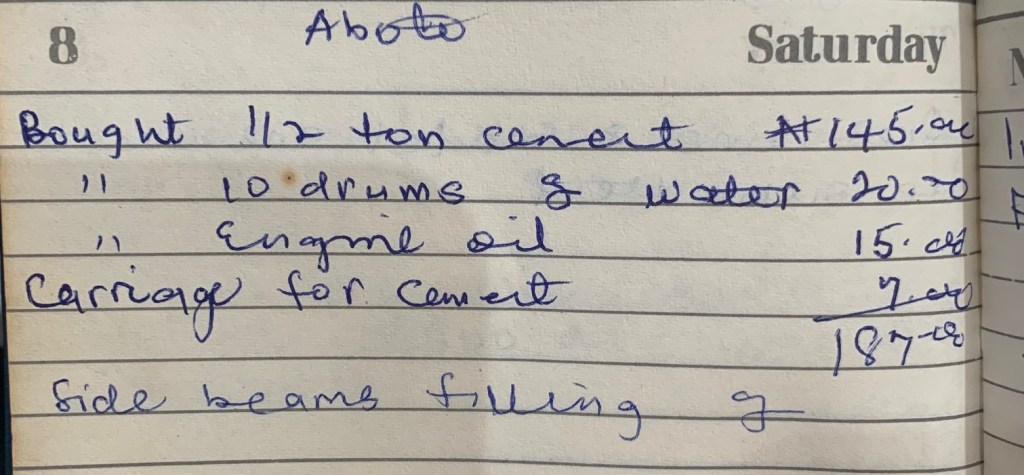 8 Aboto Saturday
Bought 1/2 ton cement ₦145.00
" 10 drums of water 20.00
" Engine oil 15.00
Carriage for cement 7.00
187-00
Side beams filling of